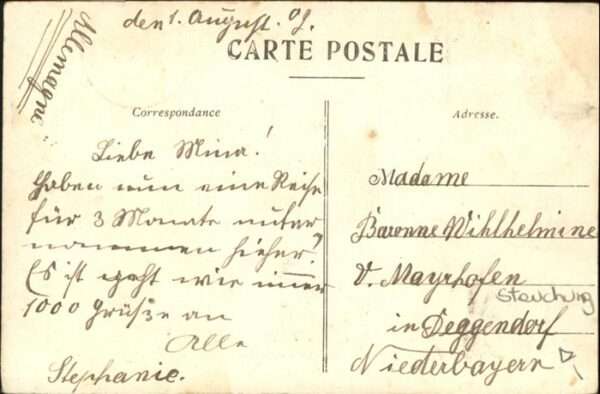 den 1. August. 09.
Allemagne.
CARTE POSTALE
Correspondance
Liebe Mina!
Haben nun eine Reise
für 3 Monate unter
nommen hieher.
Es ist geht wie immer
1000 Grüße an
Alle
Stephanie.
Adresse.
Madame
Baronne Wihlhelmine
v. Mayrhofen
in Deggendorf
Niederbayern